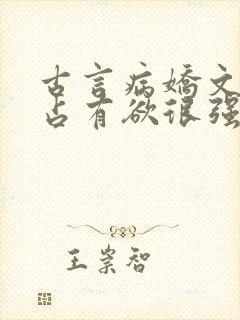 古言病娇文
占有欲很强
王崇智